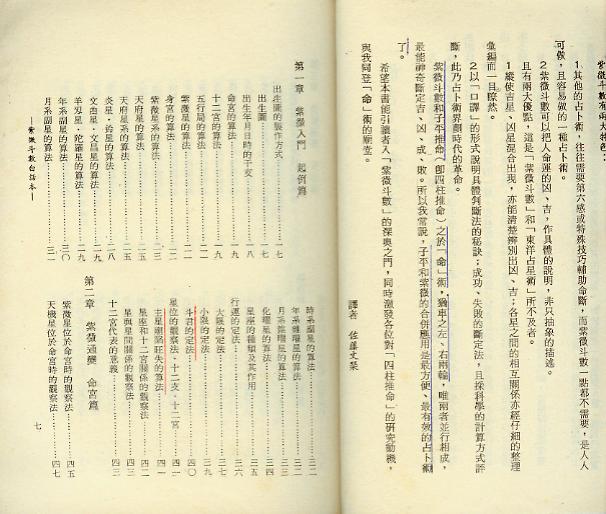 紫微斗數有兩大特色：
1 其他的占卜術，往往需要第六感或特殊技巧輔助命斷，而紫微斗數一點都不需要，是人人
可做，且容易做的一種占卜術。
2 紫微斗數可以把人命運的凶、吉，作具體的說明，非只抽象的描述。
且有兩大優點，這是「紫微斗數」和「東洋占星術」所不及者。
1 縱使吉星、凶星混合出現，亦能清楚辨別出凶、吉；各星之間的相互關係亦經仔細的整理
彙編而一目瞭然。
2 以「口譯」的形式說明具體判斷法的秘訣；成功、失敗的斷定法，且採科學的計算方式評
斷，此乃占卜術界劃時代的革命。
紫微斗數和子平推命（卽四柱推命）之於「命」術，猶車之左、右兩輪，唯兩者並行相成，
最能神奇斷定吉、凶、成、敗。所以我常說，子平和紫微的合併應用是最方便、最有效的占卜術
了。
希望本書能引讀者入「紫微斗數」的深奧之門，同時激發各位對「四柱推命」的研究動機，
與我同登「命」術的廟堂。
譯者 佐藤文栞
第一章 紫微入門 起例篇
出生圖的製作方式……一七
出生圖……一七
出生年月日時的干支……一八
命宮的算法……一九
十二宮的算法……一九
五行局的算法……二一
身宮的算法……二二
紫微星的算法……二二
紫微星系的算法……二三
天府星的算法……二五
天府星系的算法……二五
炎星・鈴星的算法……二八
文曲星・文昌星的算法……二九
羊刃星・陀羅星的算法……二九
年系副星的算法……三〇
月系副星的算法……三一
—紫微斗數白話本—
時系副星的算法……三二
年系雜曜星的算法……三二
月系雜曜星的算法……三三
化曜星的算法……三四
星座的種類及其作用……三五
行運的定法……三六
大限的定法……三七
小限的定法……三九
斗君的定法……四〇
星位的觀察法・十二支・十二宮……四一
主星廟陷旺失的算法……四一
星座和十二宮關係的觀察法……四二
星與星間關係的觀察法……四三
十二宮代表的意義……四三
第二章 紫微通變 命宮篇
紫微星位於命宮時的觀察法……四五
天機星位於命宮時的觀察法……四七
七